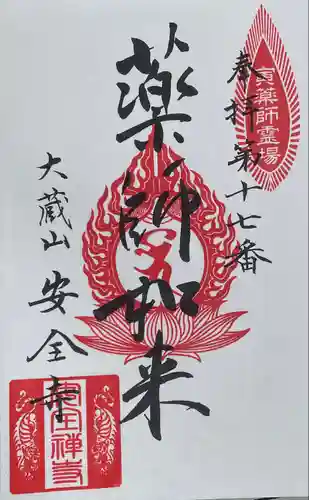 奉拝第十七番
寅薬師霊場
薬師如来
大蔵山安全寺
安全禅寺